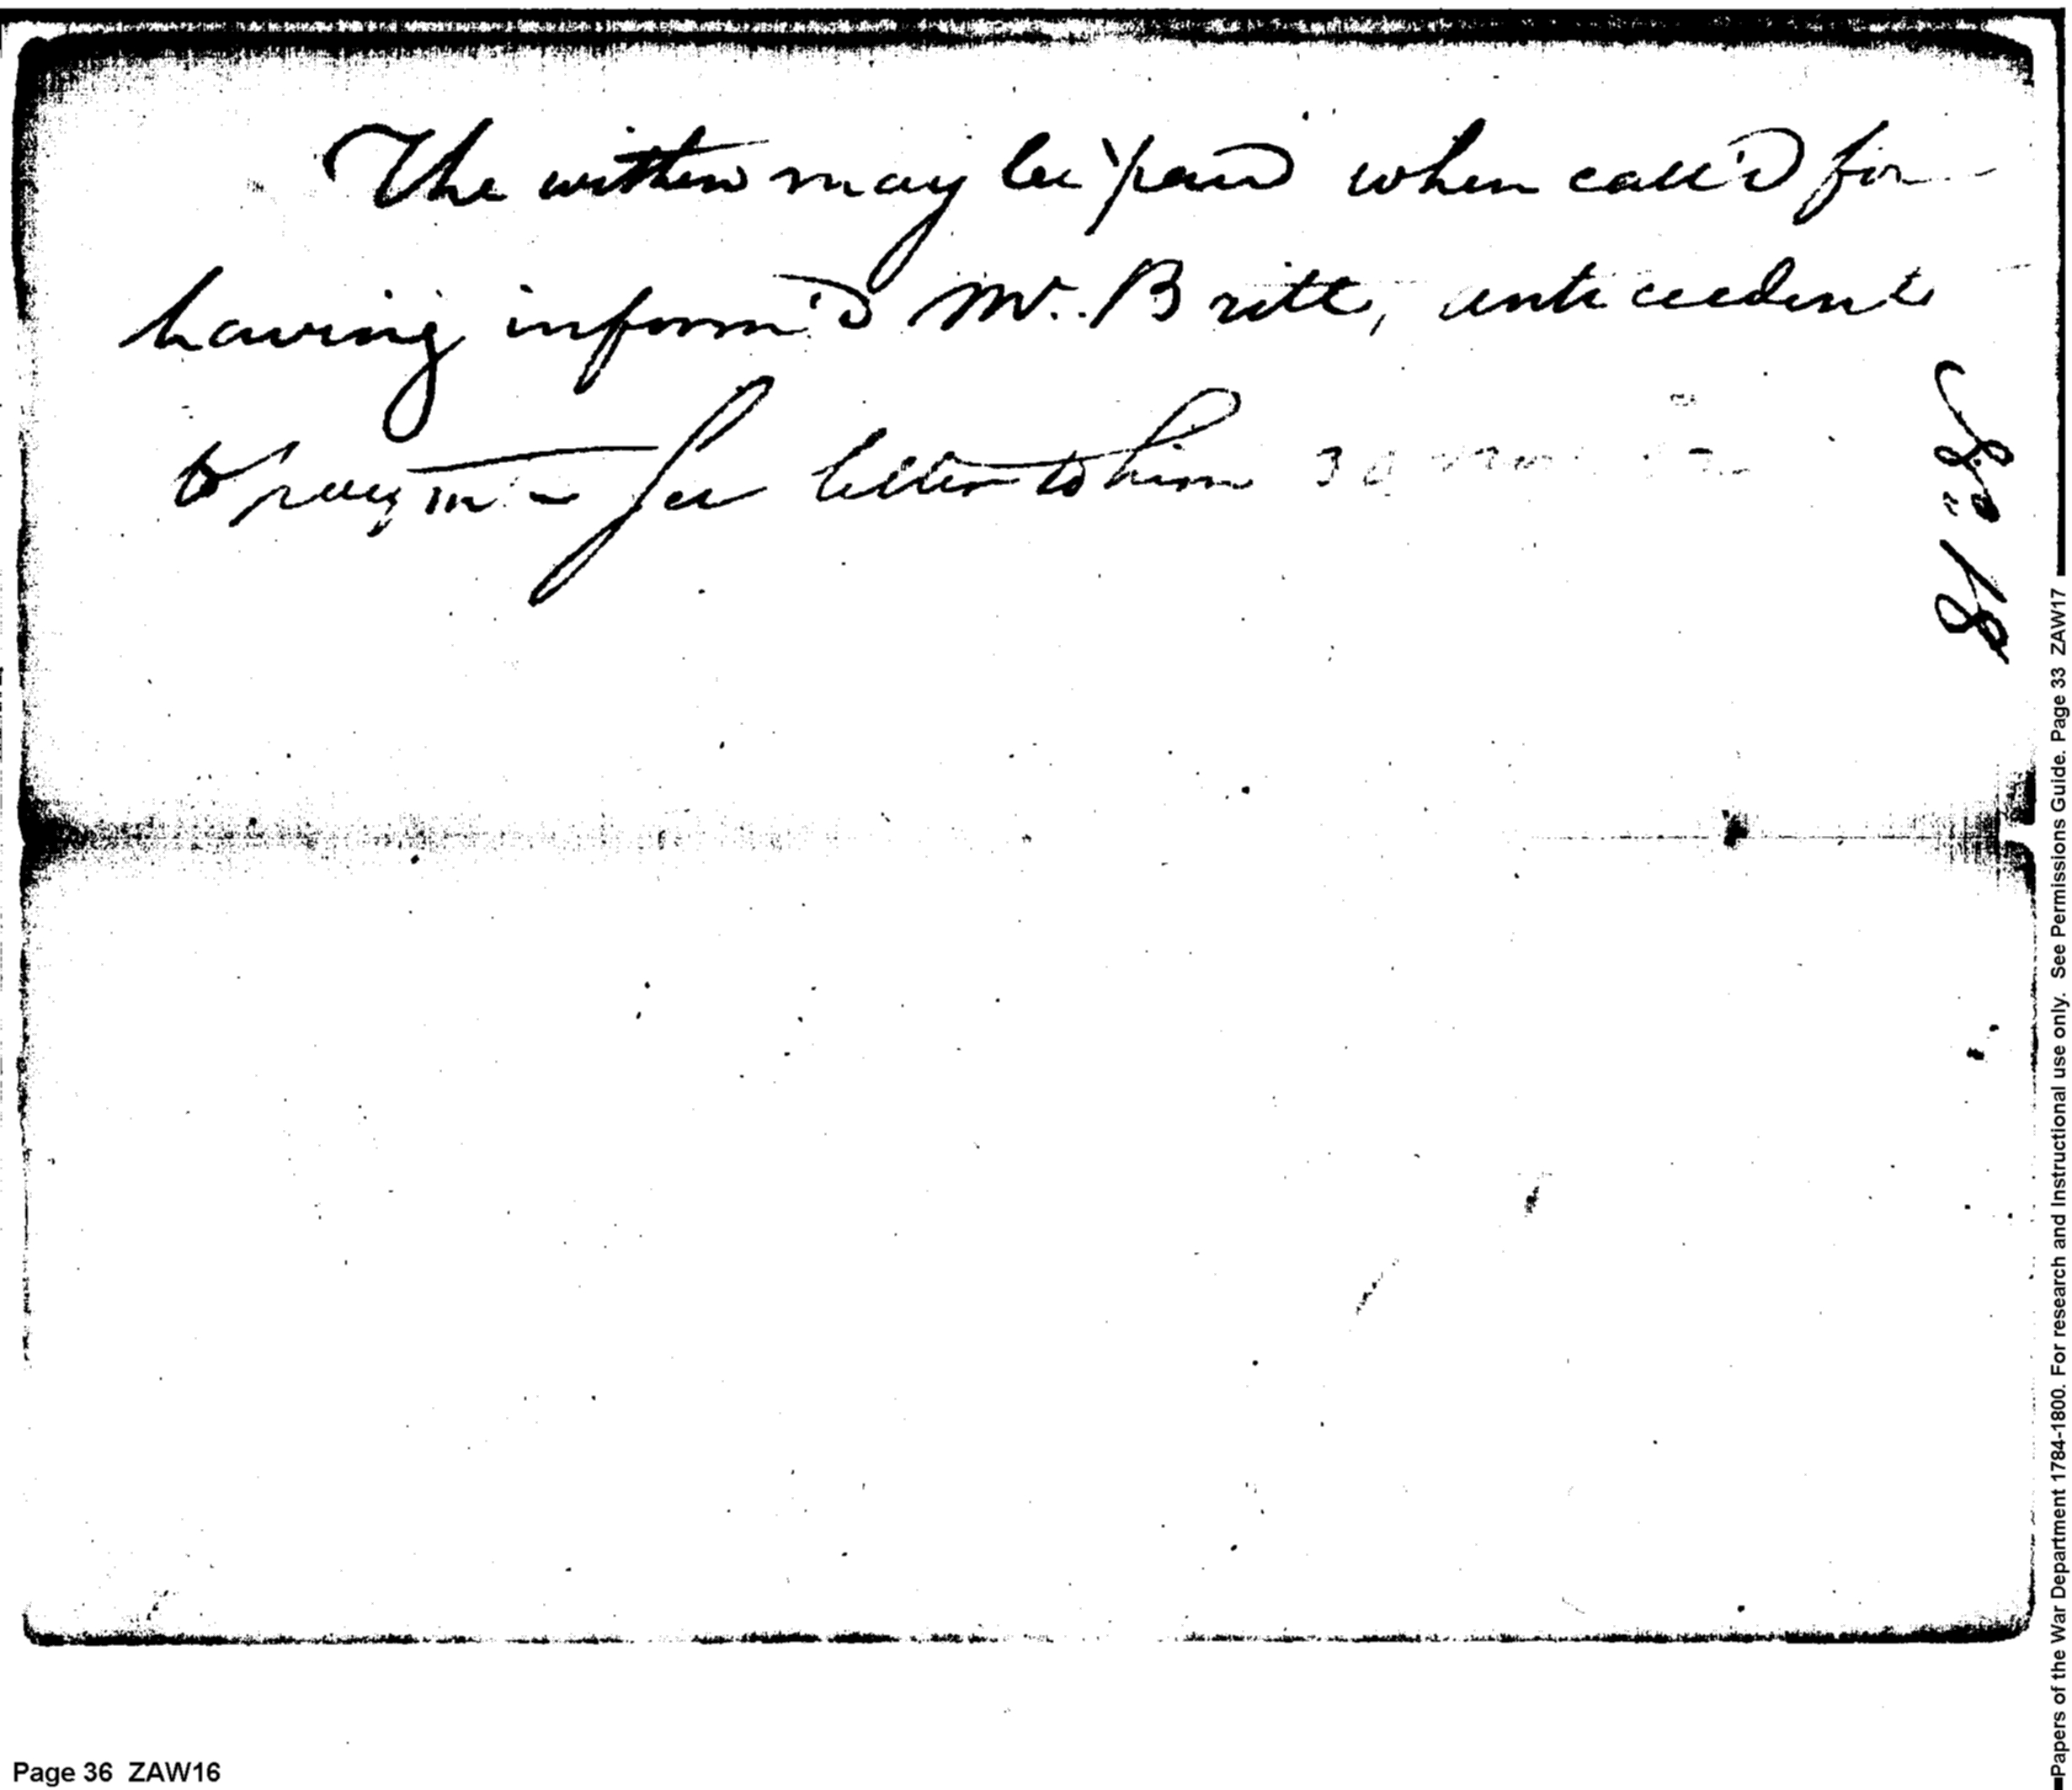 The within may be paid when call'd for
having inform'd Mr. Britt, antecedent
to paym. - See letter to him 30
Papers of the War Department 1784-1800. For research and Instructional use only. See Permissions Guide. Page 33 ZAW17
Page 36 ZAW16